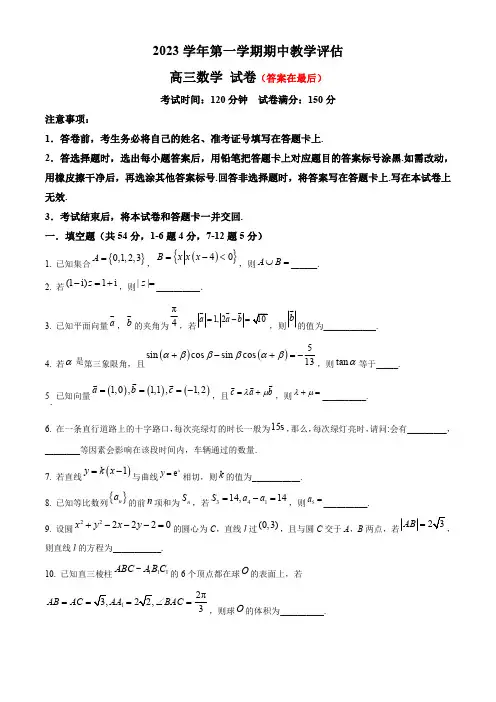 2023 学年第一学期期中教学评估
高三数学 试卷(答案在最后)
考试时间:120 分钟 试卷满分:150 分
注意事项:
1.答卷前,考生务必将自己的姓名、准考证号填写在答题卡上.
2.答选择题时,选出每小题答案后,用铅笔把答题卡上对应题目的答案标号涂黑.如需改动,
用橡皮擦干净后,再选涂其他答案标号.回答非选择题时,将答案写在答题卡上.写在本试卷上
无效.
3.考试结束后,将本试卷和答题卡一并交回.
一.填空题(共 54 分,1-6 题 4 分,7-12 题 5 分)
1. 已知集合 A={0,1,2,3},B={x|x(x−4)<0},则 A∪B=______.
2. 若 (1−i)z=1+i,则 |z|=__________.
3. 已知平面向量 a⃗,b⃗ 的夹角为 π/4,若 |a⃗|=1, |2a⃗−b⃗|=√10,则 |b⃗| 的值为____________.
4. 若 α 是第三象限角,且 sin(α+β)cosβ−sinβcos(α+β)=−5/13,则 tanα 等于_____.
5. 已知向量 a⃗=(1,0), b⃗=(1,1), c⃗=(−1,2),且 c⃗=λa⃗+μb⃗,则 λ+μ=__________.
6. 在一条直行道路上的十字路口,每次亮绿灯的时长一般为15s,那么,每次绿灯亮时,请问:会有_________,
________等因素会影响在该段时间内,车辆通过的数量.
7. 若直线 y=k(x−1) 与曲线 y=eˣ 相切,则 k 的值为___________.
8. 已知等比数列 {aₙ} 的前 n 项和为 Sₙ,若 S₃=14, a₄−a₁=14,则 a₅=__________.
9. 设圆 x²+y²−2x−2y−2=0 的圆心为 C,直线 l 过 (0,3),且与圆 C 交于 A,B 两点,若 |AB|=2√3,
则直线 l 的方程为___________.
10. 已知直三棱柱 ABC−A₁B₁C₁ 的 6 个顶点都在球 O 的表面上,若
AB=AC=√3, AA₁=2√2, ∠BAC=2π/3,则球 O 的体积为__________.